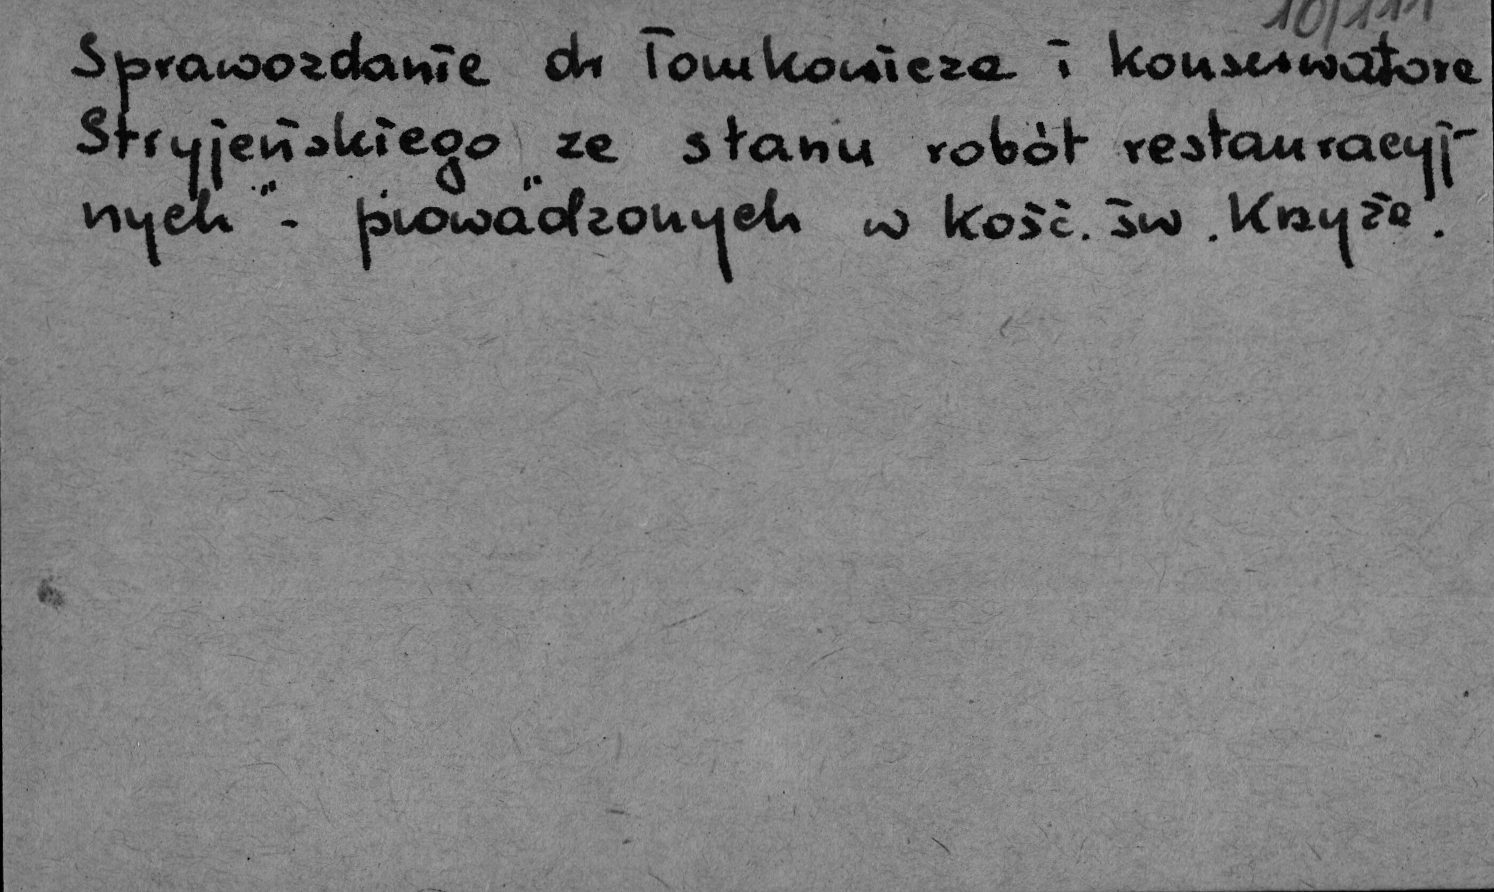 10/111
Sprawozdanie dr Tomkowicza i konserwatora
Stryjeńskiego ze stanu robót restauracyj-
nych" - prowadzonych w kość. św. Krzyża.